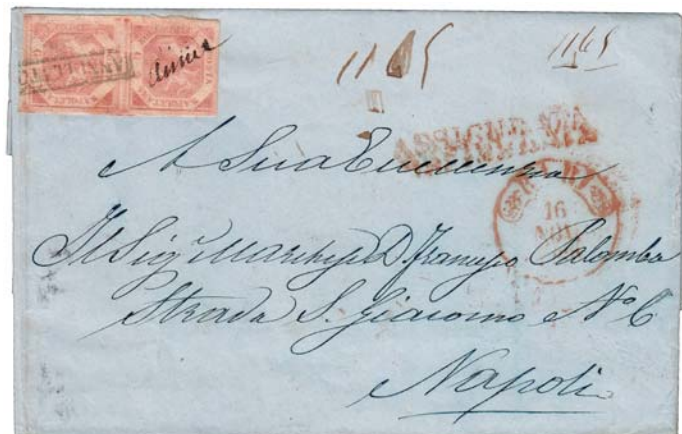 ANNULLATO
1165
1165
ASSICURATA
A Sua Eccellenza
16
NOV
Il Sig. Marchese D. Francesco Palomba
Strada S. Giacomo N° 6
Napoli